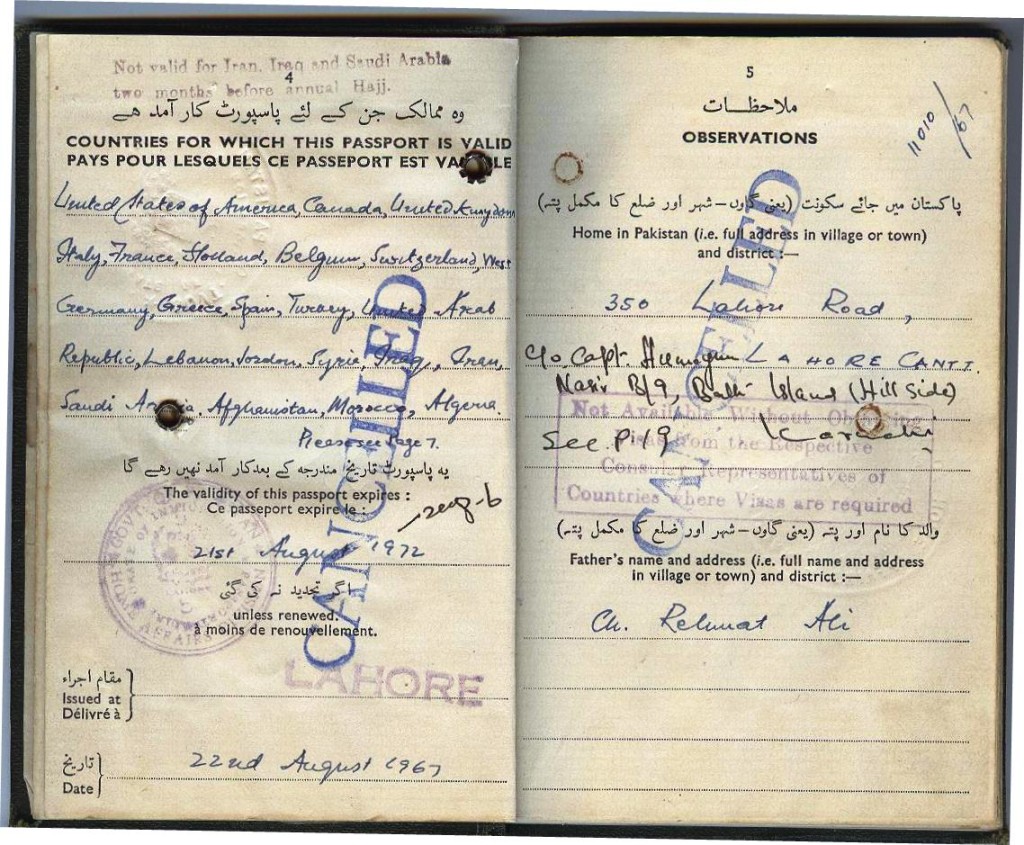 Not valid for Iran, Iraq and Saudi Arabia
4
two months before annual Hajj.
وہ ممالک جن کے لئے پاسپورٹ کار آمد ہے
COUNTRIES FOR WHICH THIS PASSPORT IS VALID
PAYS POUR LESQUELS CE PASSEPORT EST VALABLE
United States of America, Canada, United Kingdom
Italy, France, Holland, Belgium, Switzerland, West
Germany, Greece, Spain, Turkey, United Arab
Republic, Lebanon, Jordon, Syria, Iraq, Iran,
Saudi Arabia, Afghanistan, Morocco, Algeria.
Please see Page 7.
یہ پاسپورٹ تاریخ مندرجہ کے بعد کار آمد نہیں رہے گا
The validity of this passport expires :
Ce passeport expire le :
21st August 1972
اگر تجدید نہ کی گئی
unless renewed.
à moins de renouvellement.
CANCELLED
LAHORE
مقام اجراء
Issued at
Délivré à
تاریخ
Date
22nd August 1967
5
ملاحظات
OBSERVATIONS
11010/67
پاکستان میں جائے سکونت (یعنی گاوں–شہر اور ضلع کا مکمل پتہ)
Home in Pakistan (i.e. full address in village or town)
and district :—
350 Lahore Road,
LAHORE CANTT.
C/o Capt. Humayun
Nasir B/9, Bath Island (Hill Side)
Karachi
See P. 19
Not Available Without Obtaining
Visas from the Respective
Consular Representatives of
Countries where Visas are required
CANCELLED
والد کا نام اور پتہ (یعنی گاوں–شہر اور ضلع کا مکمل پتہ)
Father's name and address (i.e. full name and address
in village or town) and district :—
Ch. Rehmat Ali